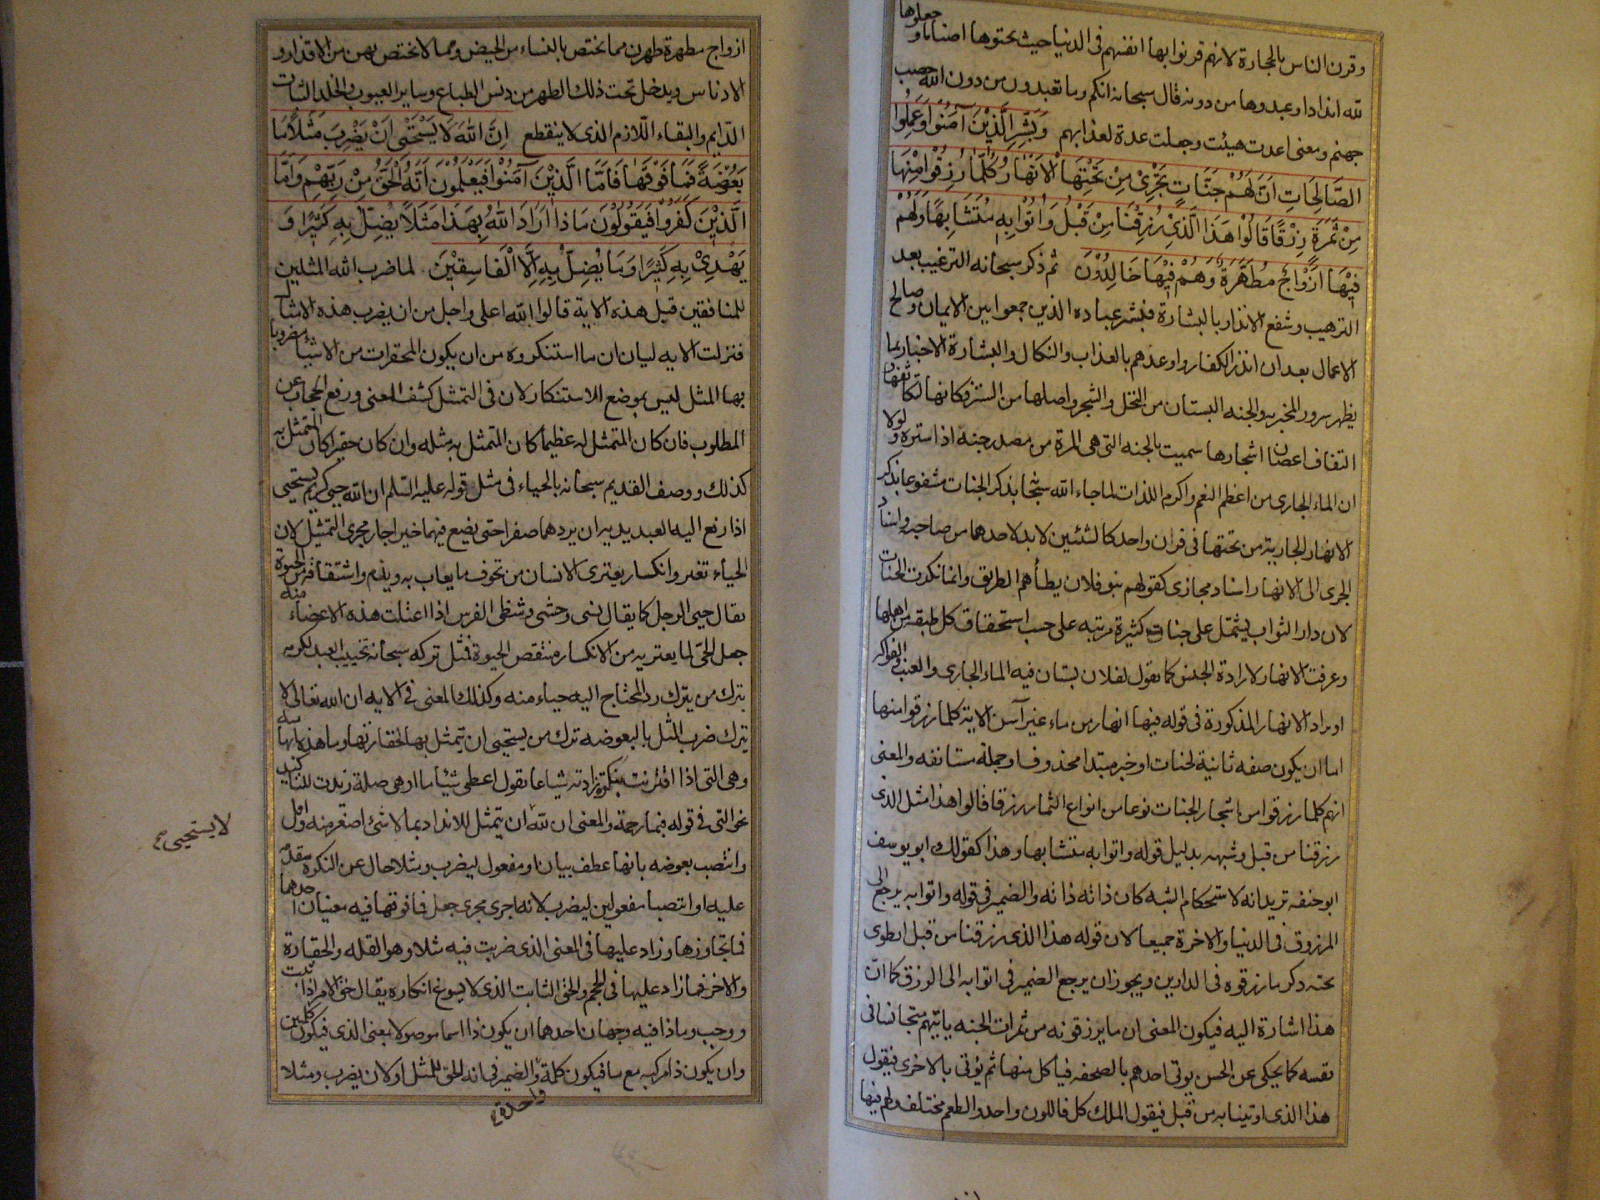 وقرن الناس بالحجارة لانهم قرنوا بها انفسهم في الدنيا حيث نحتوها اصناما و جعلوها
لله اندادا وعبدوها من دونه قال سبحانه انكم وما تعبدون من دون الله حصب
جهنم ومعنى اعدت هيئت وجعلت عدة لعذابهم وَبَشِّرِ الَّذِيْنَ آمَنُوْا وَعَمِلُوا
الصَّالِحَاتِ اَنَّ لَهُمْ جَنَّاتٍ تَجْرِيْ مِنْ تَحْتِهَا الْاَنْهَارُ كُلَّمَا رُزِقُوْا مِنْهَا
مِنْ ثَمَرَةٍ رِزْقًا قَالُوْا هَذَا الَّذِيْ رُزِقْنَا مِنْ قَبْلُ وَاُتُوْا بِهِ مُتَشَابِهًا وَلَهُمْ
فِيْهَا اَزْوَاجٌ مُطَهَّرَةٌ وَهُمْ فِيْهَا خَالِدُوْنَ ثم ذكر سبحانه الترغيب بعد
الترهيب وشفع الانذار بالبشارة فبشر عباده الذين جمعوا بين الايمان وصالح
الاعمال بعد ان انذر الكفار واوعدهم بالعذاب والنكال والبشارة الاخبار بما
يظهر سرور المخبر به والجنه البستان من النخل والشجر واصلها من الستر فكانها لتكاثفها
التفاف اغصان اشجارها سميت بالجنه التى هى المرة من مصدر جنه اذا ستره و لولا
ان الماء الجارى من اعظم النعم واكرم اللذات لما جاء الله بذكر الجنات مشفوعا بذكر
الانهار الجارية من تحتها فى قران واحد كالشئين لابد لاحدهما من صاحبه واسناد
الجرى الى الانهار اسناد مجازى كقولهم بنو فلان يطأهم الطريق وانما نكرت الجنات
لان دار الثواب يشتمل على جنات كثيرة مرتبه على حسب استحقاق كل طبقه من اهلها
وعرفت الانهار لارادة الجنس كما تقول لفلان بستان فيه الماء الجارى والعنب والفواكه
او يراد الانهار المذكورة فى قوله فيها انهار من ماء غير آسن الاية كلما رزقوا منها
اما ان يكون صفه ثانية لجنات او خبر مبتدا محذوف او جملة مستانفه والمعنى
انهم كلما رزقوا من اشجار الجنات نوعا من انواع الثمار رزقا قالوا هذا مثل الذى
رزقنا من قبل وشبهه بدليل قوله واتوا به متشابها وهذا كقولك ابو يوسف
ابو حنيفه تريد انه لاستحكام الشبه كان ذاته ذاته والضمير فى قوله واتوا به يرجع الى
المرزوق فى الدنيا والاخرة جميعا لان قوله هذا الذى رزقنا من قبل انطوى
تحته ذكر ما رزقوه فى الدارين ويجوز ان يرجع الضمير فى اتوا به الى الرزق كما ان
هذا اشارة اليه فيكون المعنى ان ما يرزقونه من ثمرات الجنه ياتيهم متجانسا فى
نفسه كما يحكى عن الحسن يوتى احدهم بالصحفه فياكل منها ثم يؤتى بالاخرى فيقول
هذا الذى اوتينا به من قبل فيقول الملك كل فاللون واحد والطعم مختلف ولهم فيها
ازواج مطهرة طهرن مما يختص بالنساء من الحيض ومما لا يختص بهن من الاقذار و
الادناس ويدخل تحت ذلك الطهر من دنس الطباع وساير العيوب والخلد الثبات
الدايم والبقاء اللازم الذى لا ينقطع اِنَّ اللهَ لَا يَسْتَحْيِى اَنْ يَضْرِبَ مَثَلًا مَا
بَعُوْضَةً فَمَا فَوْقَهَا فَاَمَّا الَّذِيْنَ آمَنُوْا فَيَعْلَمُوْنَ اَنَّهُ الْحَقُّ مِنْ رَبِّهِمْ وَاَمَّا
الَّذِيْنَ كَفَرُوْا فَيَقُوْلُوْنَ مَاذَا اَرَادَ اللهُ بِهَذَا مَثَلًا يُضِلُّ بِهِ كَثِيْرًا وَ
يَهْدِيْ بِهِ كَثِيْرًا وَمَا يُضِلُّ بِهِ اِلَّا الْفَاسِقِيْنَ لما ضرب الله المثلين
للمنافقين قبل هذه الاية قالوا الله اعلى واجل من ان يضرب هذه الامثال
فنزلت الايه لبيان ان ما استنكروه من ان يكون المحقرات من الاشياء مضروبا
بها المثل ليس بموضع للاستنكار لان فى التمثل كشف المعنى ورفع الحجاب عن
المطلوب فان كان المتمثل له عظيما كان المتمثل به مثله وان كان حقيرا كان المتمثل به
كذلك ووصف القديم سبحانه بالحياء فى مثل قوله عليه السلم ان الله حيى كريم يستحيى
اذا رفع اليه العبد يديه ان يردهما صفرا حتى يضع فيهما خيرا جار مجرى التمثيل لان
الحياء تغير وانكسار يعترى الانسان من تخوف ما يعاب به ويذم واشتقاقه من الحيوة
يقال حيى الرجل كما يقال نسى وحشى وشظى الفرس اذا اعتلت هذه الاعضاء منه
جعل الحيى لما يعتريه من الانكسار منتقص الحيوة فمثل تركه سبحانه تخييب العبد لكرمه
بترك من يترك رد المحتاج اليه حياء منه وكذلك المعنى فى الايه ان الله تعالى لا
يترك ضرب المثل بالبعوضه ترك من يستحيى ان يتمثل بها لحقارتها وما هذه ابهاميه
وهى التى اذا اقترنت بنكرة زادته شياعا تقول اعطى شيئا ما او هى صلة زيدت للتاكيد
نحو التى فى قوله فبما رحمة والمعنى ان لله ان يتمثل للانداد بما لا شئ اصغر منه واقل
وانتصب بعوضه بانها عطف بيان او مفعول ليضرب ومثلا حال عن النكرة مقدمه
عليه او انتصبا مفعولين ليضرب لانه اجرى مجرى جعل فما فوقها فيه معنيان احدهما
فما تجاوزها وزاد عليها فى المعنى الذى ضربت فيه مثلا وهو القله والحقارة
والاخر فما زاد عليها فى الحجم والحق الثابت الذى لا يسوغ انكاره يقال حق الامر اذا ثبت
ووجب وماذا فيه وجهان احدهما ان يكون ذا اسما موصولا بمعنى الذى فيكون كلمتين
وان يكون ذا مركبه مع ما فيكون كلمة والضمير فى انه الحق للمثل او لان يضرب ومثلا
واحدة
لا يستحيى